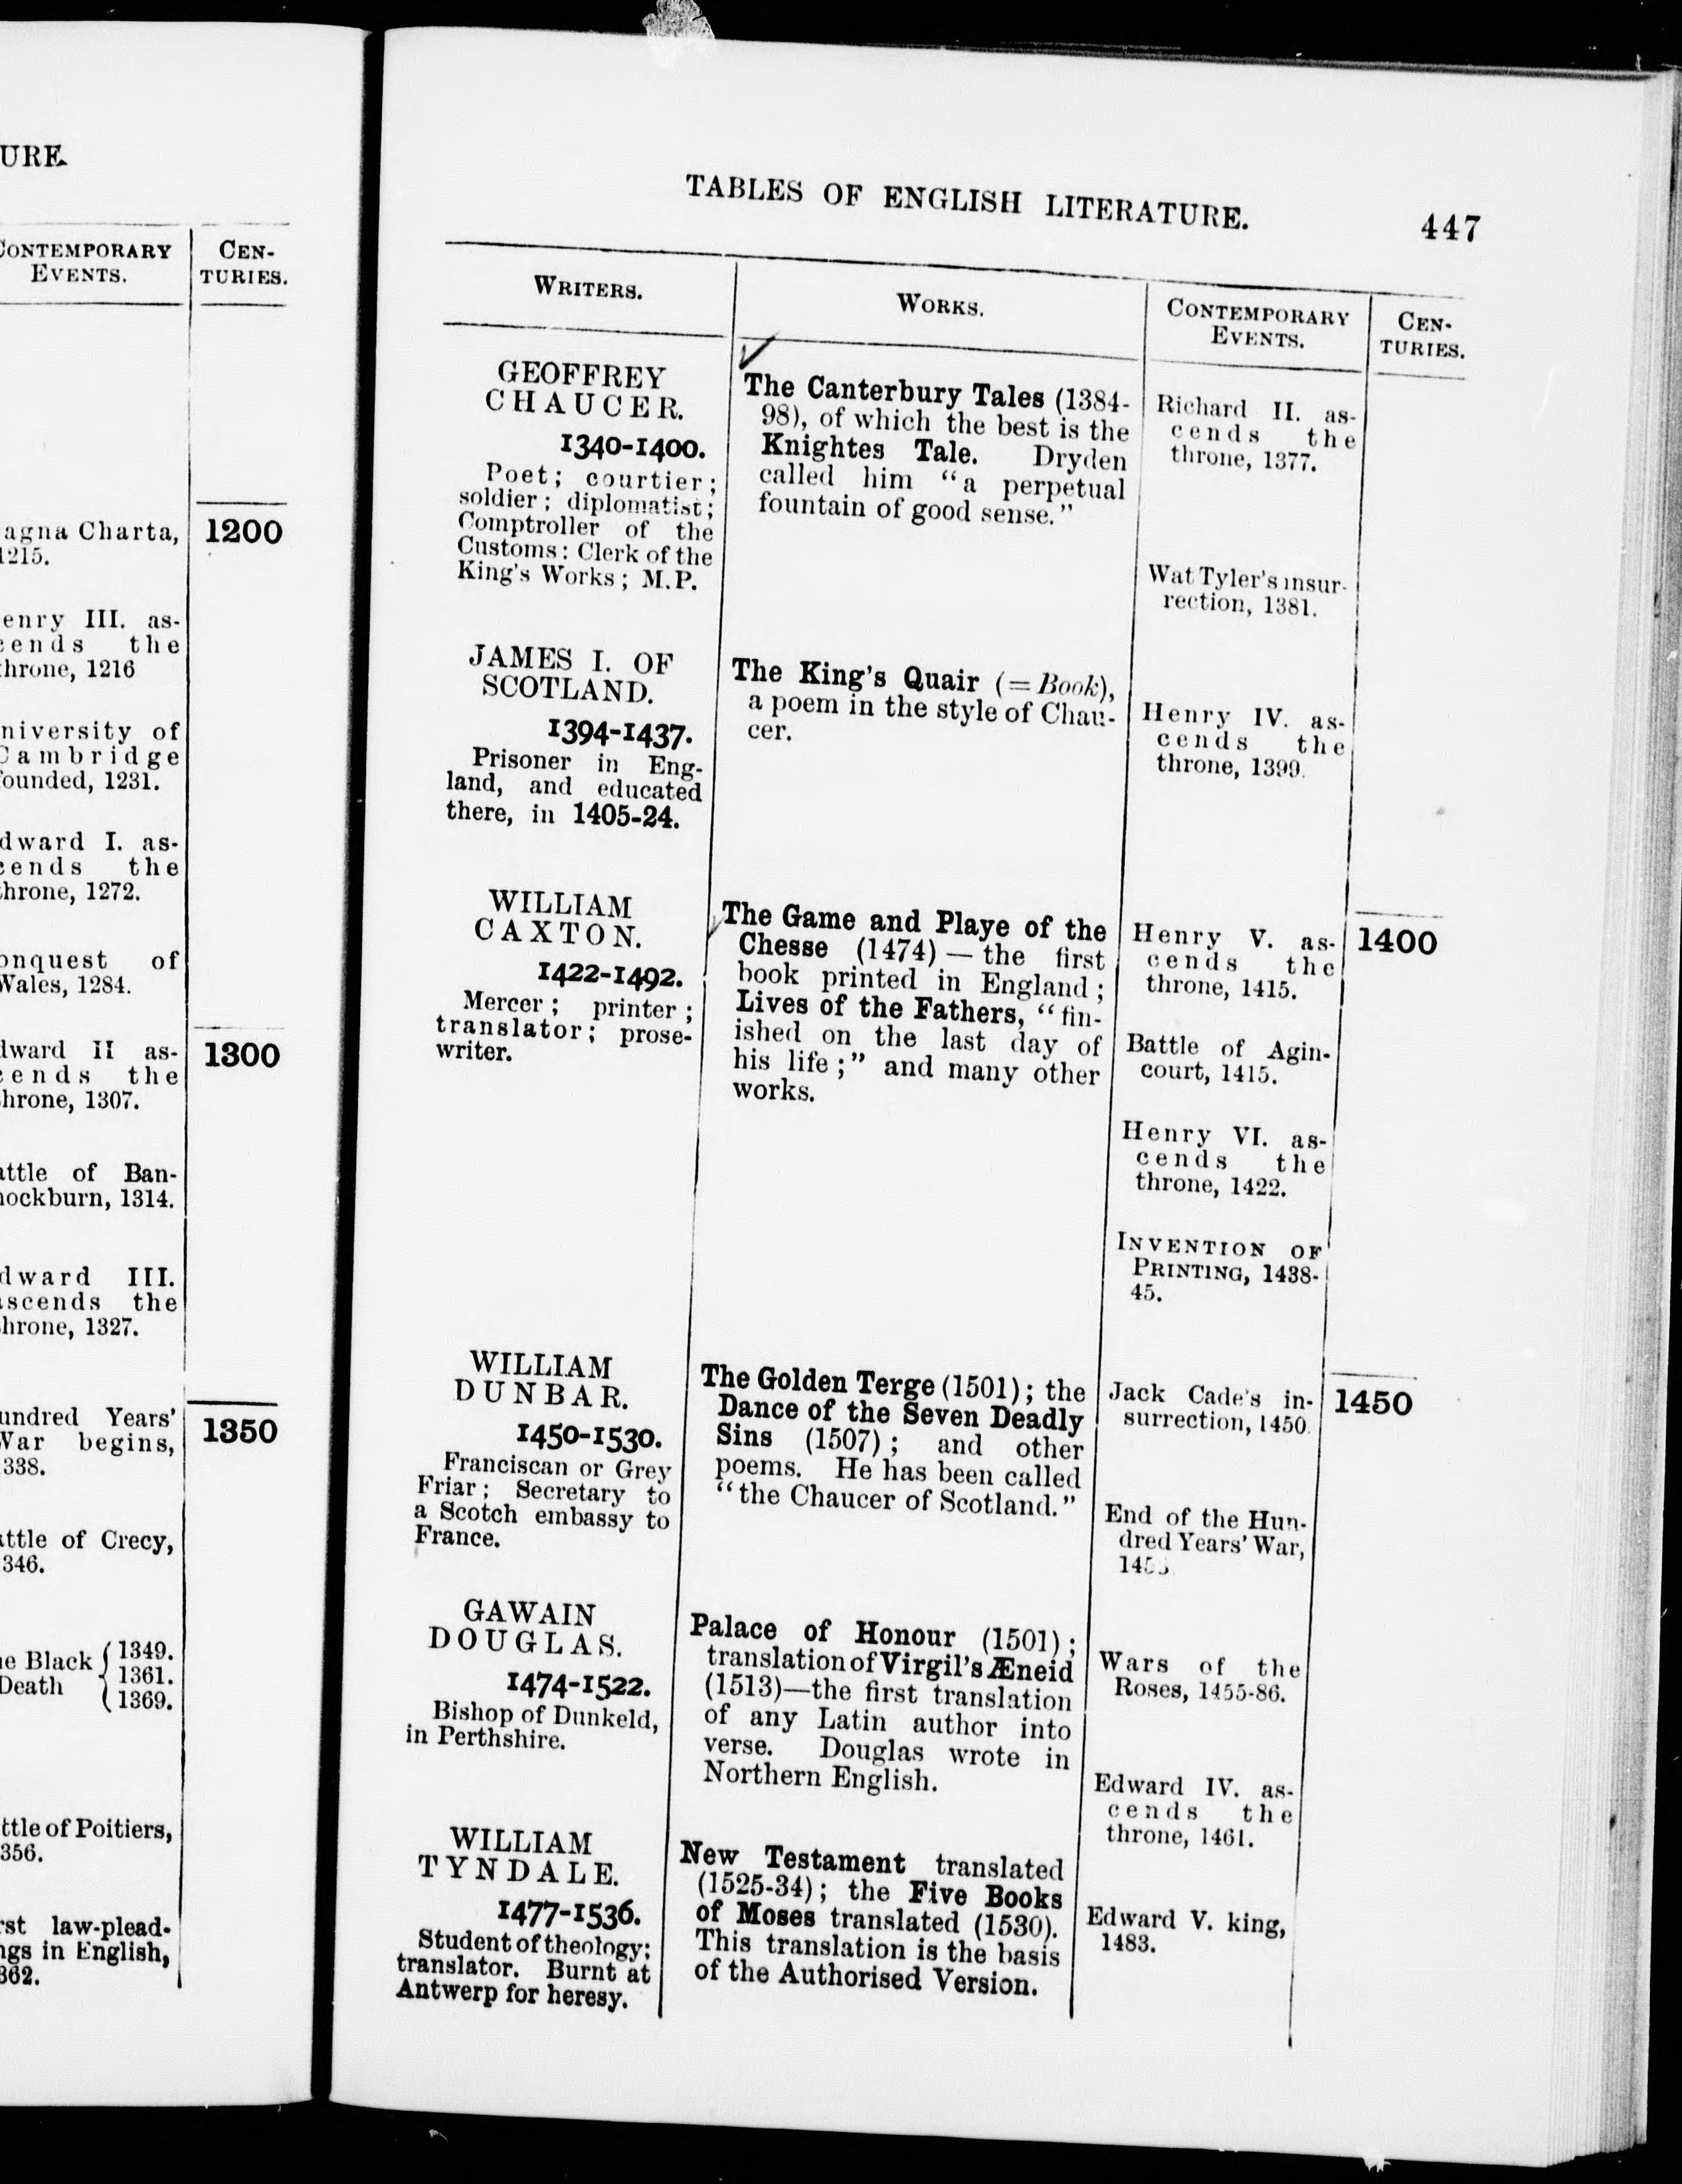 URE.
CONTEMPORARY
EVENTS.
CEN-
TURIES.
agna Charta,
1215.
1200
enry III. as-
cends the
throne, 1216
niversity of
Cambridge
founded, 1231.
dward I. as-
cends the
throne, 1272.
onquest of
Wales, 1284.
dward II as-
cends the
throne, 1307.
1300
attle of Ban-
nockburn, 1314.
dward III.
ascends the
throne, 1327.
undred Years'
War begins,
1338.
1350
attle of Crecy,
1346.
ne Black
Death
1349.
1361.
1369.
ttle of Poitiers,
356.
rst law-plead-
ngs in English,
362.
TABLES OF ENGLISH LITERATURE.
447
WRITERS.
WORKS.
CONTEMPORARY
EVENTS.
CEN-
TURIES.
GEOFFREY
CHAUCER.
1340-1400.
Poet; courtier;
soldier; diplomatist;
Comptroller of the
Customs: Clerk of the
King's Works; M.P.
The Canterbury Tales (1384-
98), of which the best is the
Knightes Tale. Dryden
called him "a perpetual
fountain of good sense."
Richard II. as-
cends the
throne, 1377.
Wat Tyler's insur-
rection, 1381.
JAMES I. OF
SCOTLAND.
1394-1437.
Prisoner in Eng-
land, and educated
there, in 1405-24.
The King's Quair (=Book),
a poem in the style of Chau-
cer.
Henry IV. as-
cends the
throne, 1399.
WILLIAM
CAXTON.
1422-1492.
Mercer; printer;
translator; prose-
writer.
The Game and Playe of the
Chesse (1474) — the first
book printed in England;
Lives of the Fathers, "fin-
ished on the last day of
his life;" and many other
works.
Henry V. as-
cends the
throne, 1415.
1400
Battle of Agin-
court, 1415.
Henry VI. as-
cends the
throne, 1422.
INVENTION OF
PRINTING, 1438-
45.
WILLIAM
DUNBAR.
1450-1530.
Franciscan or Grey
Friar; Secretary to
a Scotch embassy to
France.
The Golden Terge (1501); the
Dance of the Seven Deadly
Sins (1507); and other
poems. He has been called
"the Chaucer of Scotland."
Jack Cade's in-
surrection, 1450.
1450
End of the Hun-
dred Years' War,
GAWAIN
DOUGLAS.
1474-1522.
Bishop of Dunkeld,
in Perthshire.
Palace of Honour (1501);
translation of Virgil's Æneid
(1513)—the first translation
of any Latin author into
verse. Douglas wrote in
Northern English.
Wars of the
Roses, 1455-86.
Edward IV. as-
cends the
throne, 1461.
WILLIAM
TYNDALE.
1477-1536.
Student of theology;
translator. Burnt at
Antwerp for heresy.
New Testament translated
(1525-34); the Five Books
of Moses translated (1530).
This translation is the basis
of the Authorised Version.
Edward V. king,
1483.